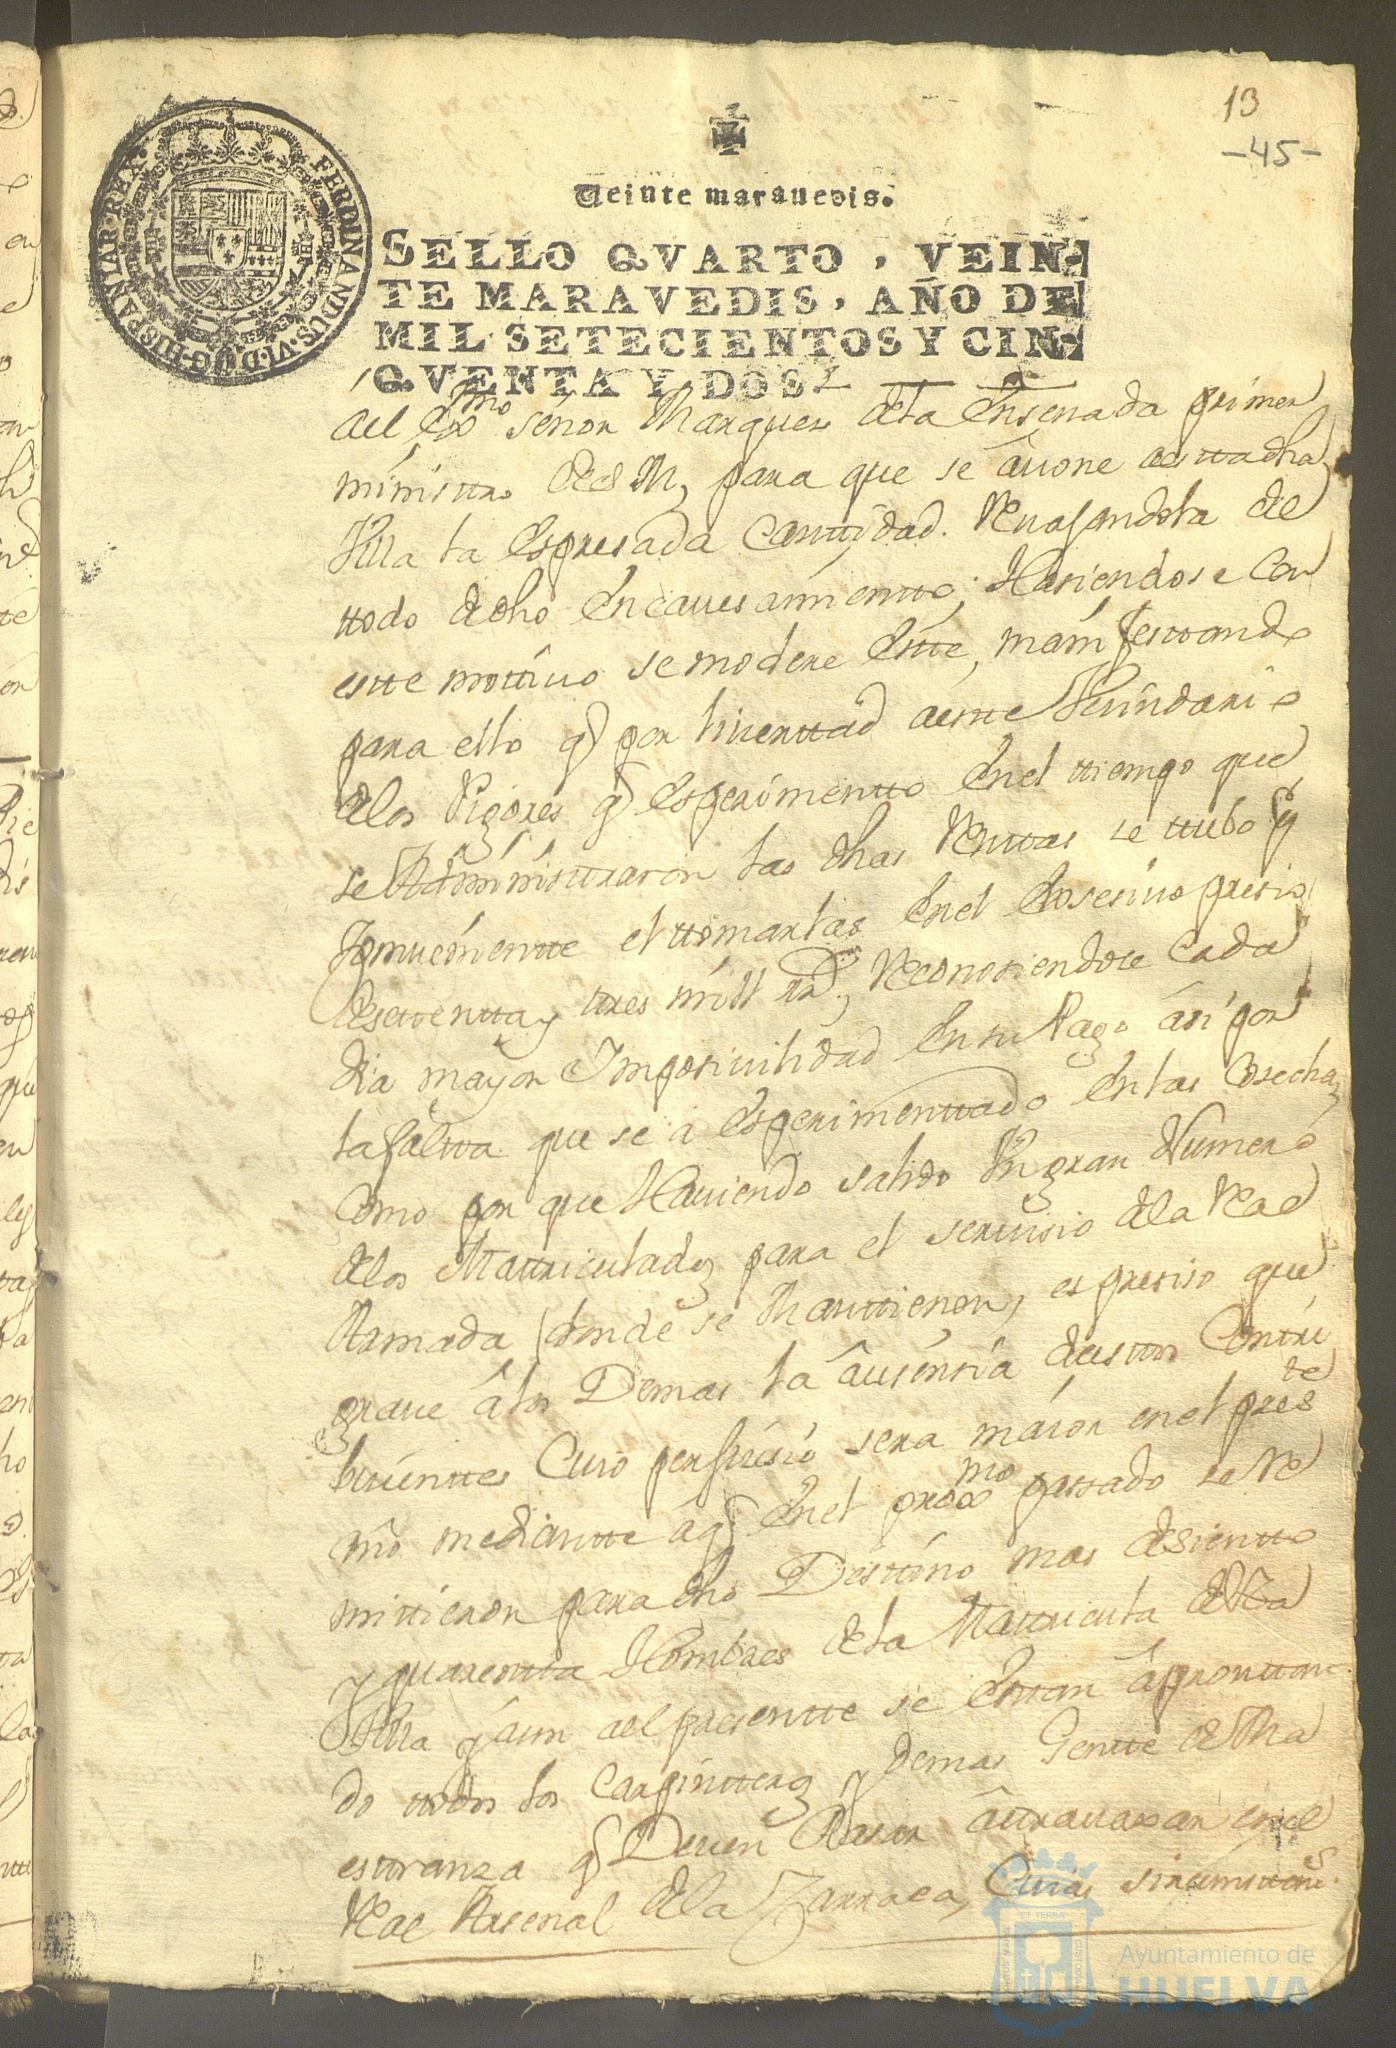 13
-45-
FERDINANDUS.VI.D.G.HISPANIAR.REX.
Veinte maravedis.
SELLO QVARTO, VEIN-
TE MARAVEDIS, AÑO DE
MIL SETECIENTOS Y CIN-
QVENTA Y DOS
del Exmo señor Marques dela Ensenada primer
ministtro de S M, para que se âvone aesttadha
Villa la Espresada Canttidad. Revajandola de
ttodo dicho Encavesamientto; Hasiendose Con
estte mottivo se modere Estte, manifesttando
para ello q por livertad aestte Vesindario
delos Rigores q Esperimentto Enel ttiempo que
se Administtraron las dhas Renttas se ttubo
el ttomarlas Enel Exsesivo presio
desettentta y ttres mill rs, Reconosiendose Cada
dia mayor Imposivilidad En su Pago ási por
la faltta que se a Esperimenttado En las Cosechas
Como por que Haviendo salido Vn gran Numero
delos Mattriculados para el servisio dela Real
Armada (donde se Manttienen, es presiso que
grave â los Demas la âusensia deestos Contri
buienttes Cuio perjuisio sera maior enel preste
año mediantte aq Enel proxmo passado se Re
mittieron para dho Desttino mas desientto
y quarentta Hombres dela Mattricula desta
Villa y aun al presentte se Esttan âprontan
do ttodos los Carpintteros y demas Gentte de Ma
esttranza q Deven Pasar âttravaxar en el
Real Arsenal dela Carraca, Cuias sircunstans
Ayuntamiento de
HUELVA